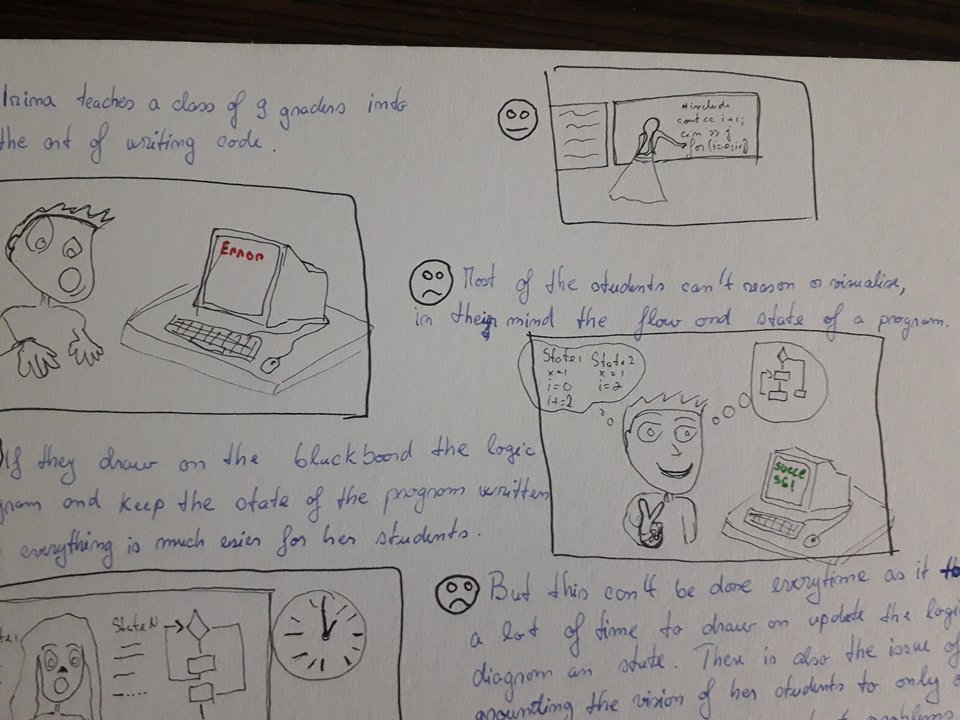 Irina teaches a class of 9 graders into
the art of writing code.
#include
cout << i+1;
cin >> j
for(i=0;i<
Error
Most of the students can't reason or visualise,
in their mind the flow and state of a program.
State1 State2
x=1 x=1
i=0 i=2
i+=2
succe
ss!
If they draw on the blackboard the logic
gram and keep the state of the program written
everything is much esier for her students.
State N
But this can't be done everytime as it
a lot of time to draw on update the logi
diagram an state. There is also the issue of
grounding the vision of her students to only
problems